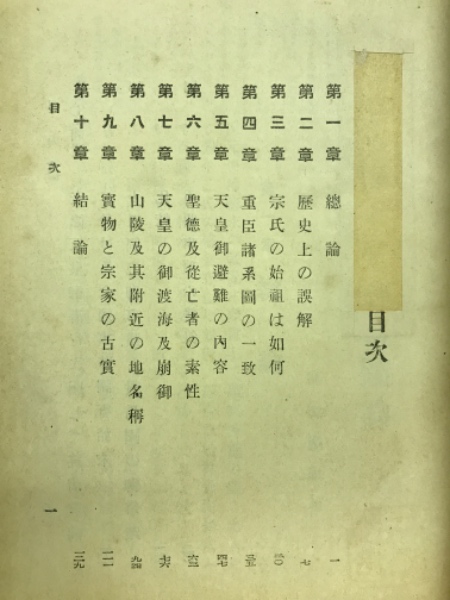 目次
第一章 總論 一
第二章 歷史上の誤解 七
第三章 宗氏の始祖は如何
第四章 重臣諸系圖の一致
第五章 天皇御避難の內容 四七
第六章 聖德及從亡者の素性
第七章 天皇の御渡海及崩御 七六
第八章 山陵及其附近の地名稱 九四
第九章 寶物と宗家の古實
第十章 結論
目次
一